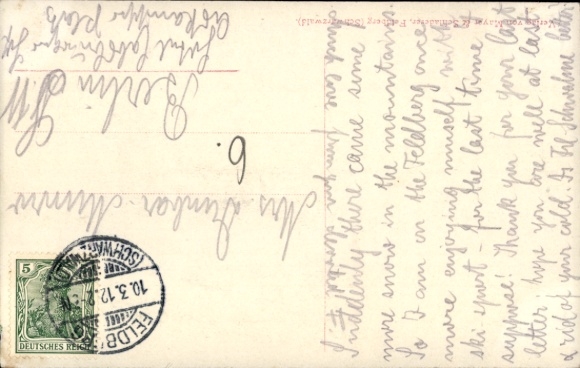 Verlag von Mayer & Schaberer, Feldberg (Schwarzwald).
Suddenly there came some
more snow in the mountains
So I am on the Feldberg once
more enjoying myself with
ski sport - for the last time I
suppose! Thank you for your last
letter, I hope you are well at last
& rid of your cold. Is Schwalme better?
much love from your
Mrs Dunbar
Berlin S.W
Hotel
Askanischer Platz
6.
5
DEUTSCHES REICH
FELDBERG
(SCHWARZWALD)
10.3.12.